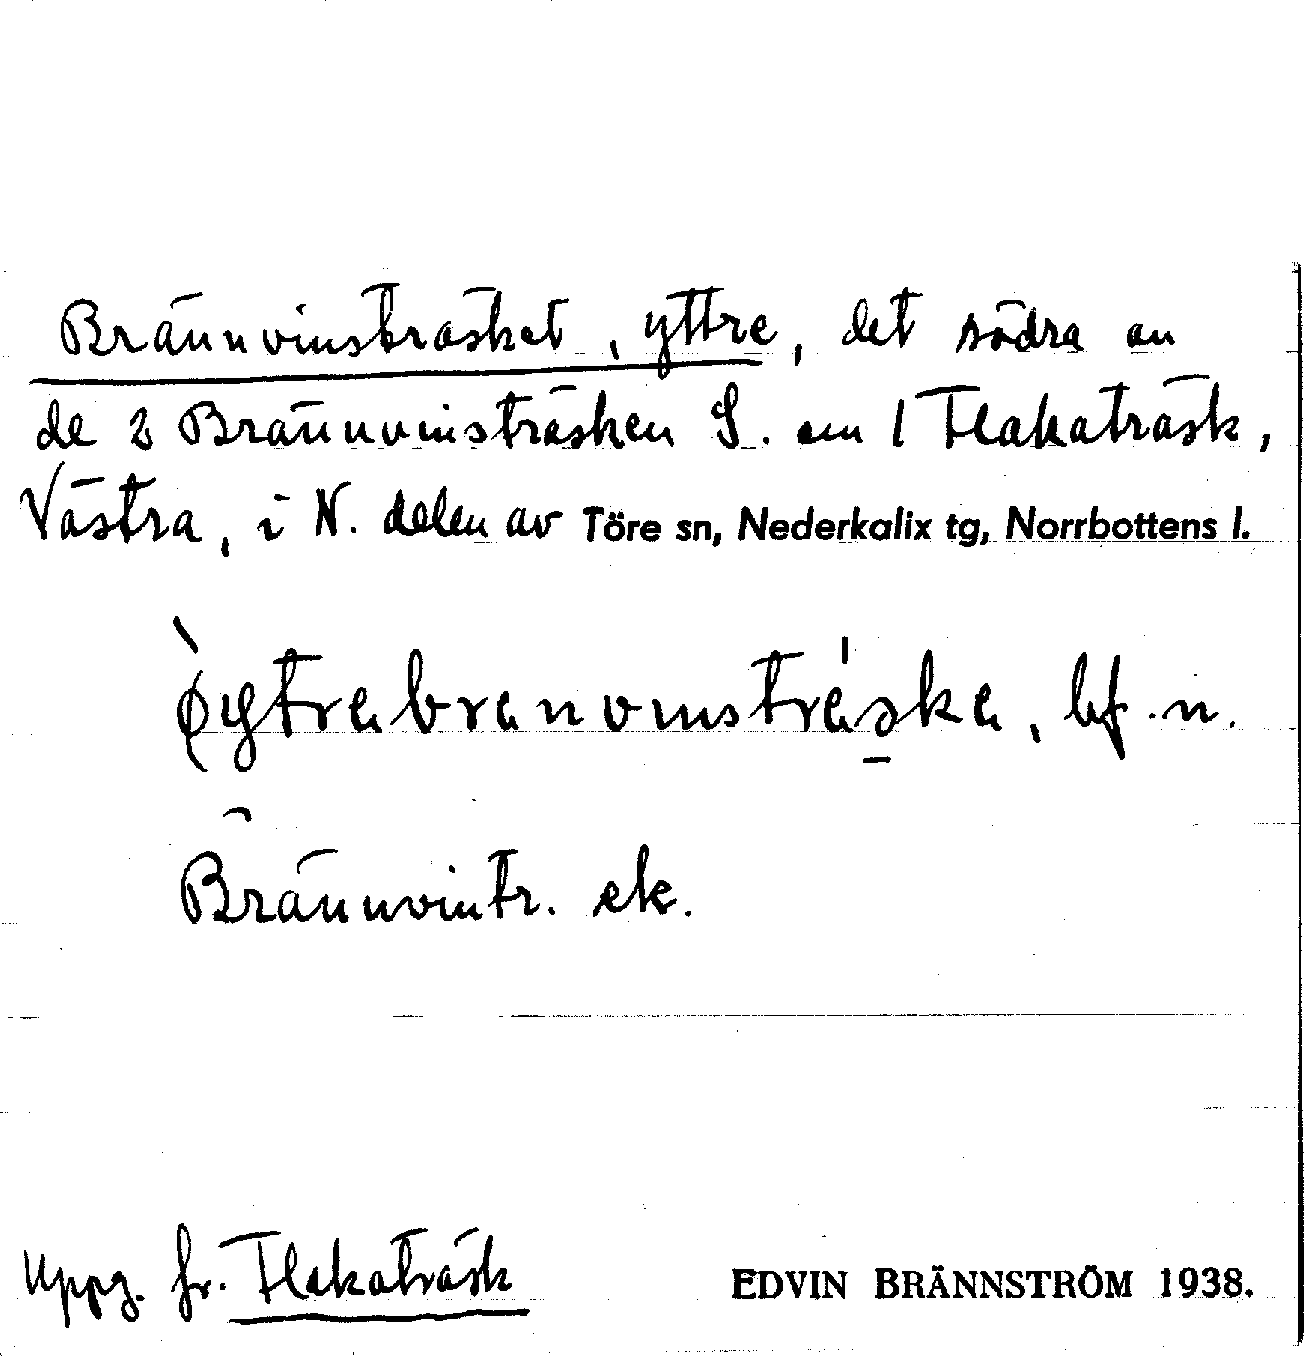 Brännvinsträsket, yttre, det södra av
de 2 Brännvinsträsken S. om 1 Flakaträsk,
Västra, i N. delen av Töre sn, Nederkalix tg, Norrbottens l.
bf. n.
Brännvintr. ek.
Uppg. fr. Flakaträsk
EDVIN BRÄNNSTRÖM 1938.